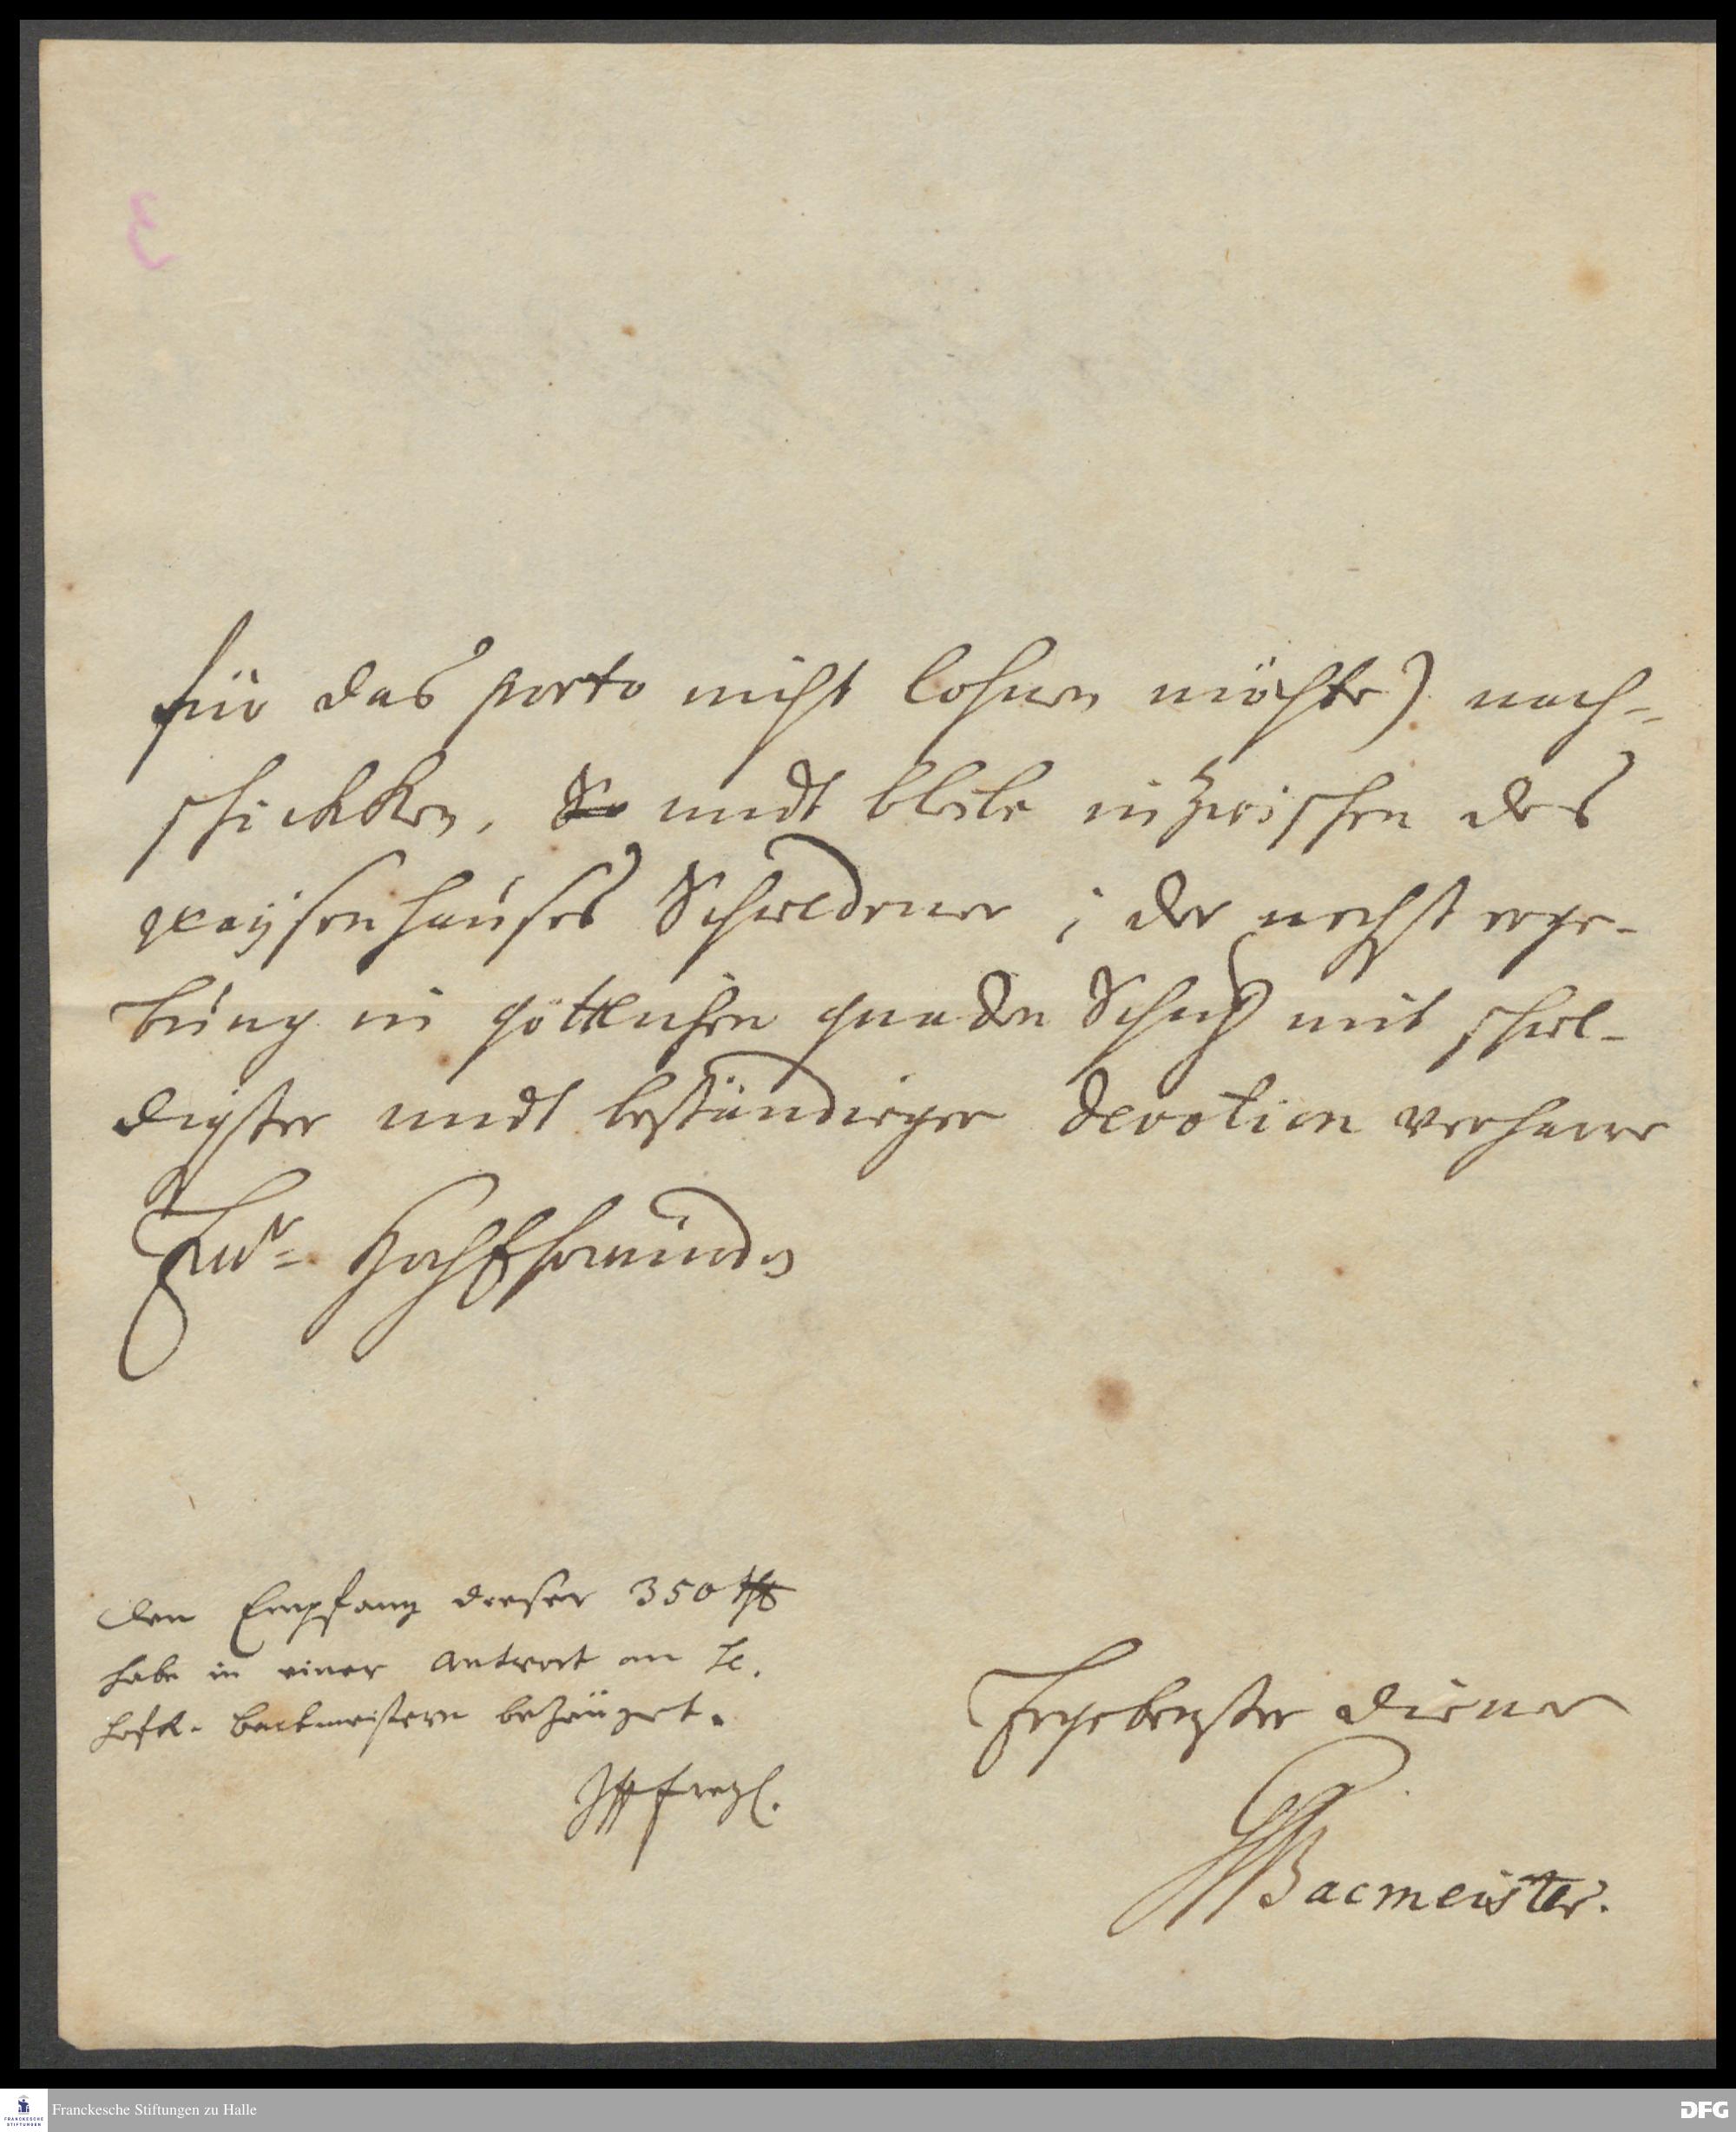 3
für das porto nicht lohnen möchte) nach-
schickken, So undt bleibe inzwischen des
waysenhauses Schuldener; der nechst erge-
bung in göttlichen gnaden Schutz mit schul-
digster undt beständiger devotion verharre
Ew: HochEhrwürden
den Empfang dieser 350
habe in einer antwort an
backmeistern bezeüget.
Ergebenster diener
Bacmeister.
Franckesche Stiftungen zu Halle
FRANCKESCHE
STIFTUNGEN
DFG